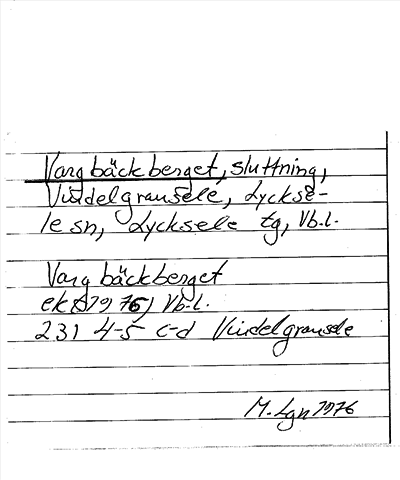 Vargbäckberget, sluttning,
Vindelgransele, Lyckse-
le sn, Lycksele tg, Vb.l.
Vargbäckberget
ek (1976) Vb.l.
23 I 4-5 c-d Vindelgransele
M. Lgn 1976